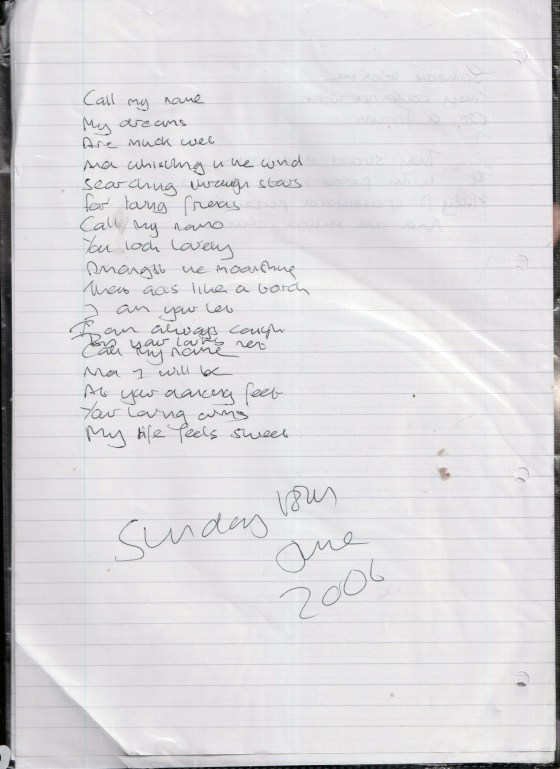 Call my name
My dreams
Are much wet
And whistling in the wind
Searching through stars
for loving friends
Call my name
You look lovely
Amongst the moonshine
That acts like a torch
I am your
I am always caught
In your loves net
Call my name
And I will be
At your dancing feet
Your loving arms
My life feels sweet
Sunday 18th
June
2006